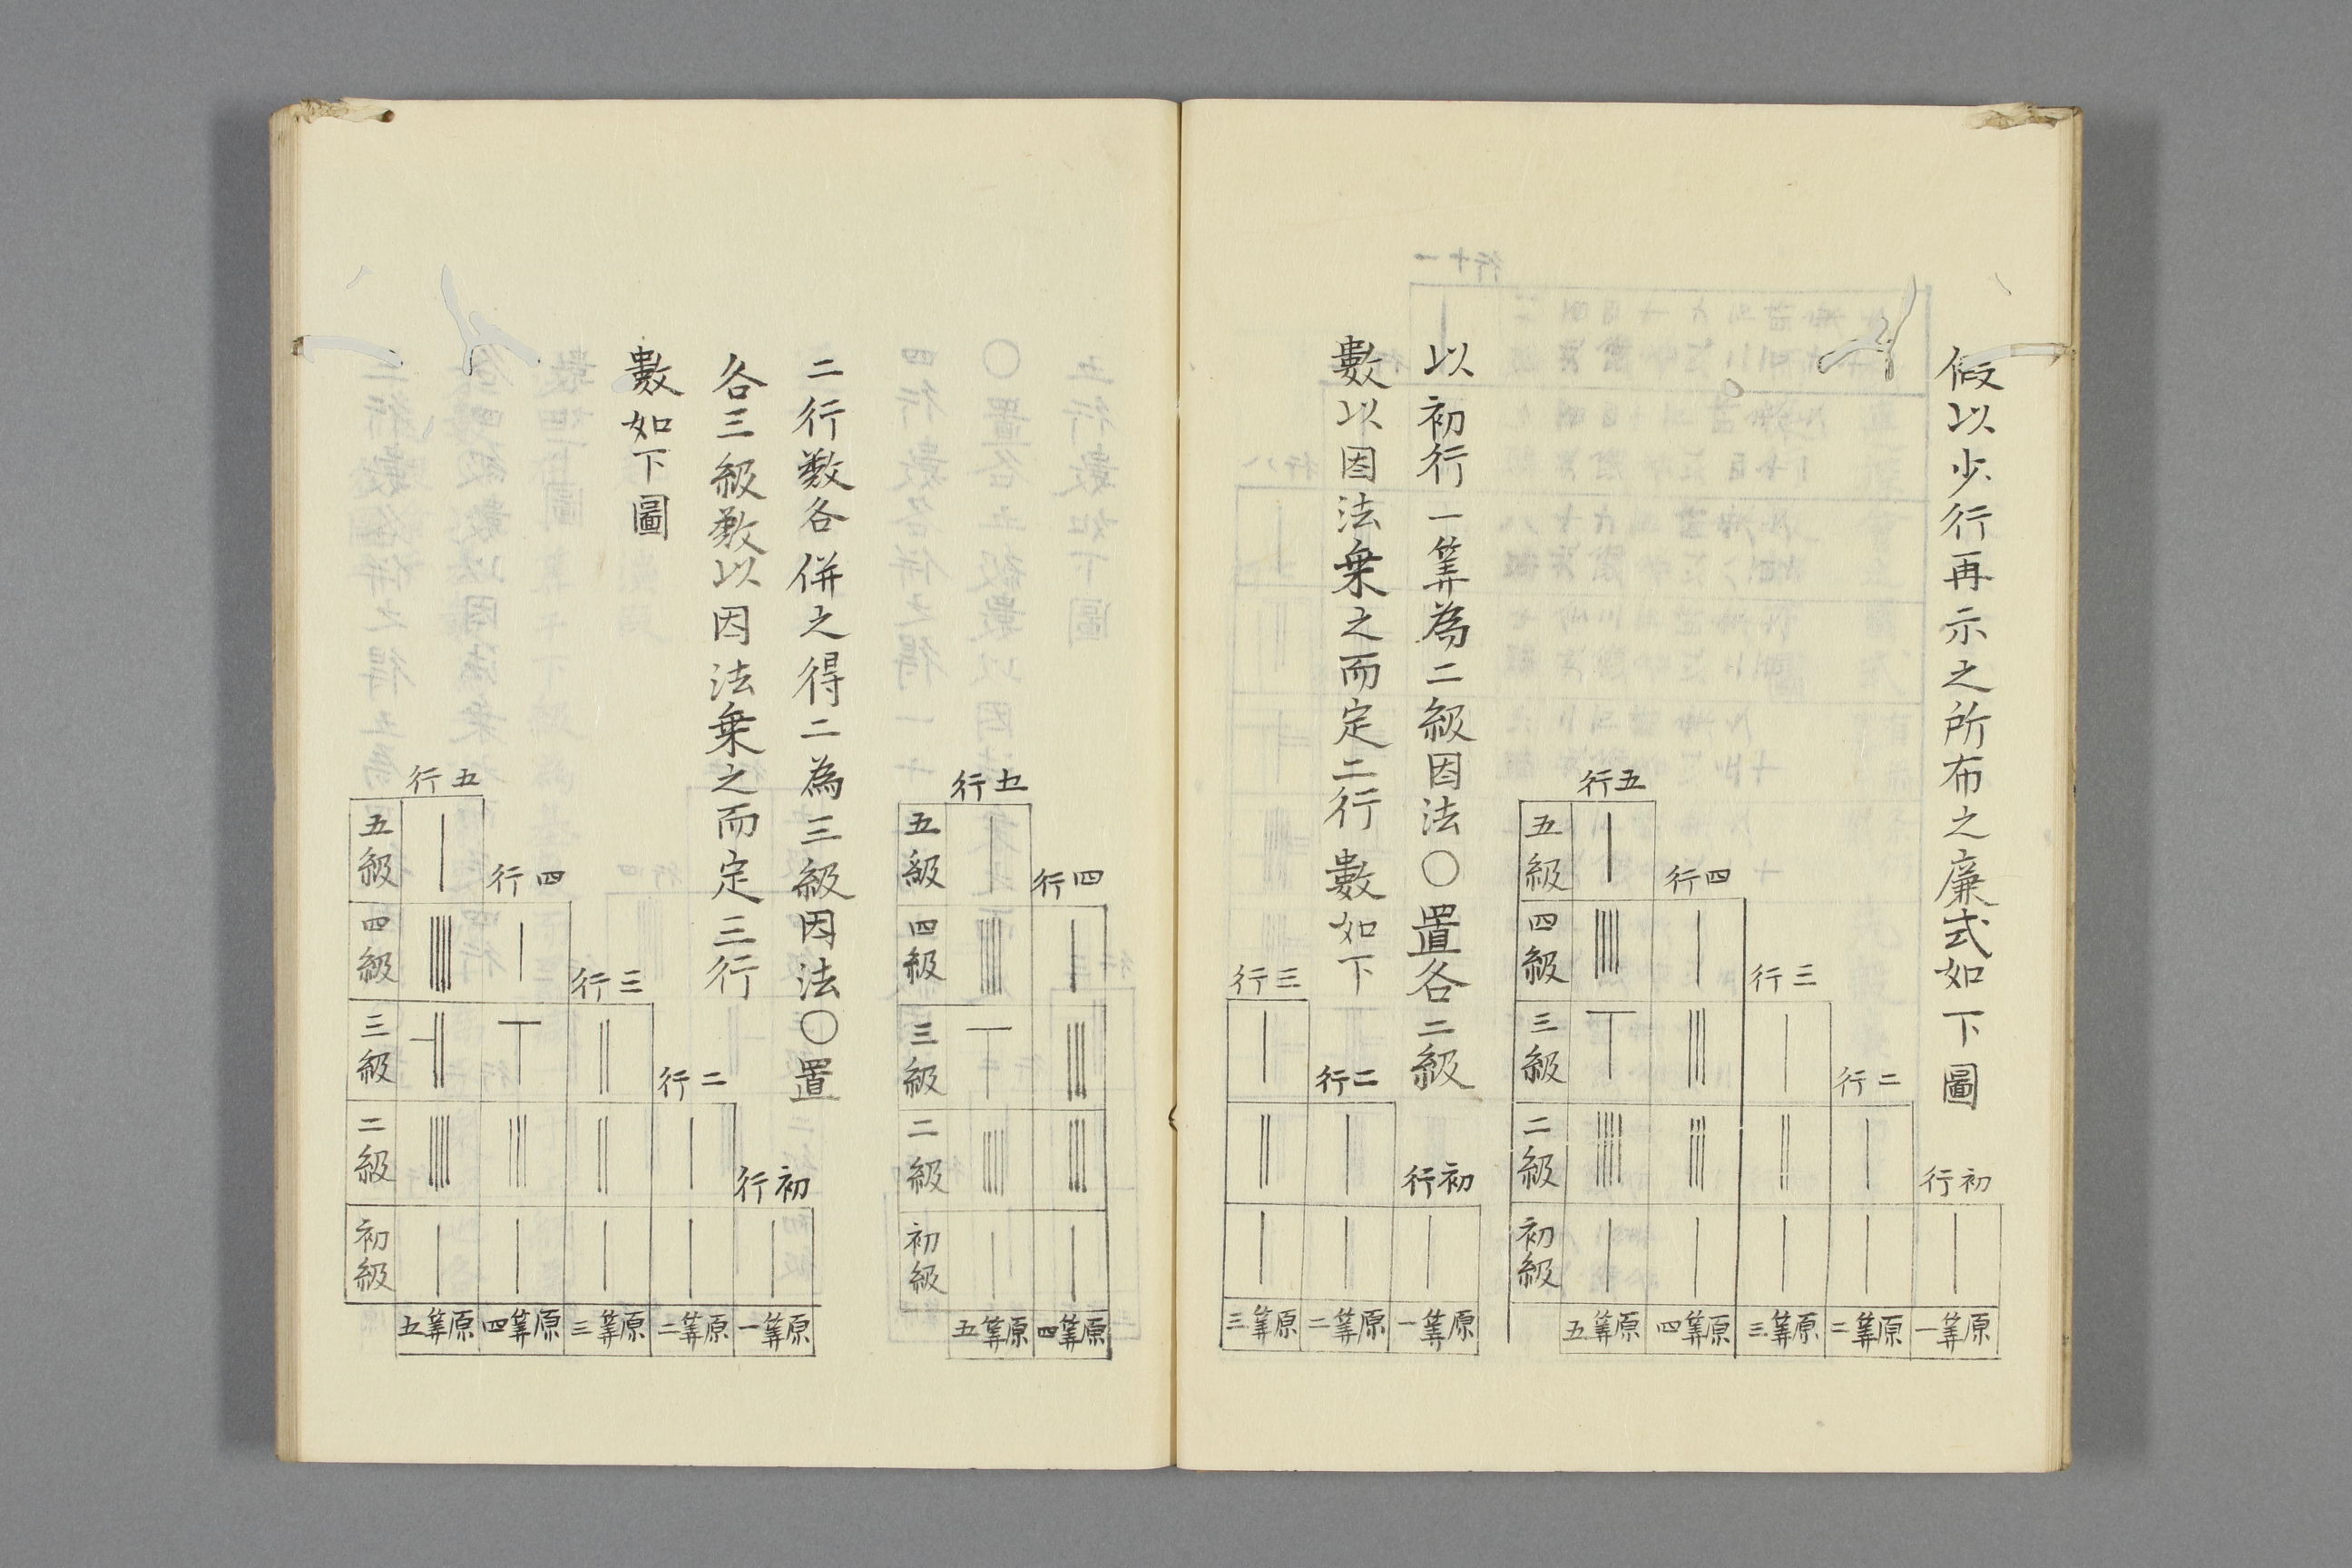 假以少行再示之所布之廉式如下圖
初行
|
原筭一
二行
|
|
原筭二
三行
|
||
|
原筭三
四行
|
|||
|||
|
原筭四
五行
|
||||
丅
||||
|
原筭五
五級
四級
三級
二級
初級
以初行一筭為二級因法〇置各二級
數以因法乗之而定二行數如下
初行
|
原筭一
二行
|
|
原筭二
三行
|
||
|
原筭三
四行
|
|||
|||
|
原筭四
五行
|
||||
丅
||||
|
原筭五
五級
四級
三級
二級
初級
二行数各併之得二為三級因法〇置
各三級数以因法乗之而定三行
數如下圖
初行
|
原筭一
二行
|
|
原筭二
三行
||
||
|
原筭三
四行
|
丅
|||
|
原筭四
五行
|
||||
一||
||||
|
原筭五
五級
四級
三級
二級
初級